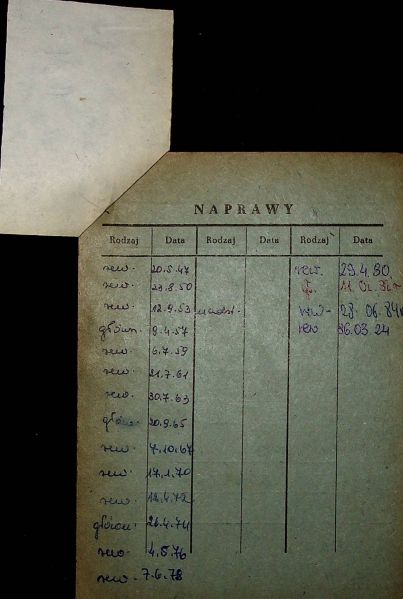 NAPRAWY
Rodzaj Data Rodzaj Data Rodzaj Data
rew. 20.5.47 rew. 29.4.80
rew. 29.8.50 gł.
rew. 12.9.53 rew. 28.06.84
główn. 9.4.57 rew 86.03.24
rew. 6.7.59
rew. 21.7.61
rew. 30.7.63
główn. 20.9.65
rew. 7.10.67
rew. 17.1.70
rew. 12.4.72
główn. 26.4.74
rew. 4.5.76
rew. 7.6.78